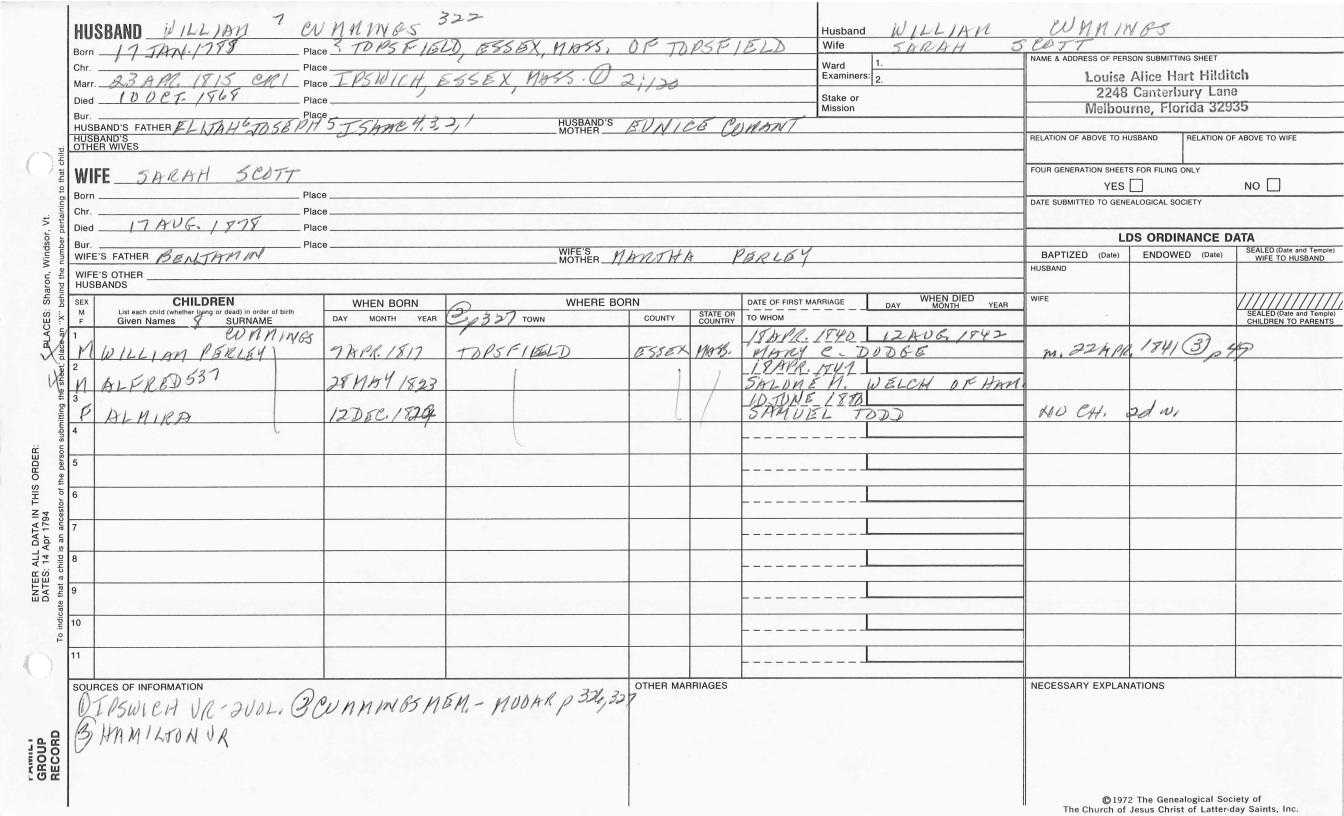 HUSBAND WILLIAM 7 CUMMINGS 322
Born 17 JAN. 1788 Place 2 TOPSFIELD, ESSEX, MASS. OF TOPSFIELD
Chr. Place
Marr. 23 APR. 1815 CR1 Place IPSWICH, ESSEX, MASS. ① 2;120
Died 10 OCT. 1868 Place
Bur. Place
HUSBAND'S FATHER ELIJAH 6 JOSEPH 5 ISAAC 4,3,2,1 HUSBAND'S MOTHER EUNICE CONANT
HUSBAND'S OTHER WIVES
WIFE SARAH SCOTT
Born Place
Chr. Place
Died 17 AUG. 1878 Place
Bur. Place
WIFE'S FATHER BENJAMIN WIFE'S MOTHER MARTHA PERLEY
WIFE'S OTHER HUSBANDS
Husband WILLIAM CUMMINGS
Wife SARAH SCOTT
Ward Examiners: 1.
2.
Stake or Mission
NAME & ADDRESS OF PERSON SUBMITTING SHEET
Louise Alice Hart Hilditch
2248 Canterbury Lane
Melbourne, Florida 32935
RELATION OF ABOVE TO HUSBAND RELATION OF ABOVE TO WIFE
FOUR GENERATION SHEETS FOR FILING ONLY
YES NO
DATE SUBMITTED TO GENEALOGICAL SOCIETY
LDS ORDINANCE DATA
BAPTIZED (Date) ENDOWED (Date) SEALED (Date and Temple) WIFE TO HUSBAND
HUSBAND
WIFE
SEALED (Date and Temple) CHILDREN TO PARENTS
SEX M F CHILDREN WHEN BORN WHERE BORN DATE OF FIRST MARRIAGE WHEN DIED
List each child (whether living or dead) in order of birth
Given Names 8 SURNAME DAY MONTH YEAR ② p327 TOWN COUNTY STATE OR COUNTRY TO WHOM DAY MONTH YEAR
CUMMINGS 18 APR. 1840 12 AUG. 1842
1 M WILLIAM PERLEY 7 APR. 1817 TOPSFIELD ESSEX MASS. MARY C. DODGE m. 22 APR. 1841 ③ p 49
18 APR. 1847
2 M ALFRED 537 28 MAY 1823 SALOME M. WELCH OF HAM.
10 JUNE 1870
3 F ALMIRA 12 DEC. 1824 SAMUEL TODD NO CH. 2d w.
4
5
6
7
8
9
10
11
SOURCES OF INFORMATION
① IPSWICH VR-2VOL. ② CUMMINGS MEM. - MOOAR p 326,327
③ HAMILTON VR
OTHER MARRIAGES
NECESSARY EXPLANATIONS
©1972 The Genealogical Society of
The Church of Jesus Christ of Latter-day Saints, Inc.
ENTER ALL DATA IN THIS ORDER:
DATES: 14 Apr 1794 PLACES: Sharon, Windsor, Vt.
To indicate that a child is an ancestor of the person submitting the sheet, place an "X" behind the number pertaining to that child.
FAMILY
GROUP
RECORD